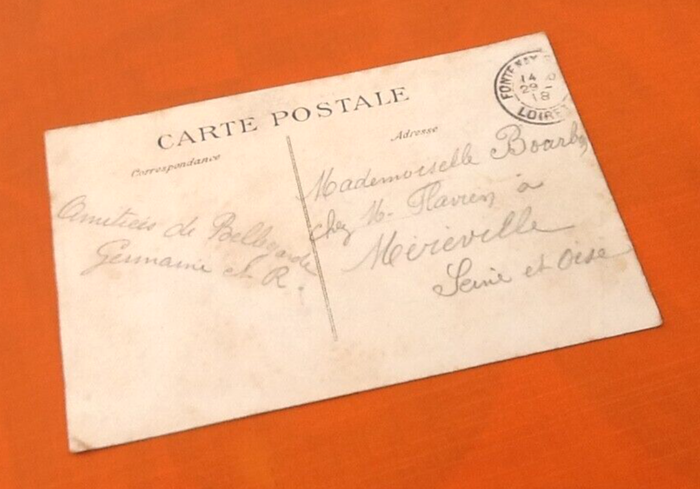 CARTE POSTALE
Correspondance
Adresse
FONTENAY
14
29 -
18
LOIRE
Amitiées de Bellegarde
Germaine et R.
Mademoiselle Bourb
chez M. Flavien à
Méréville
Seine et Oise